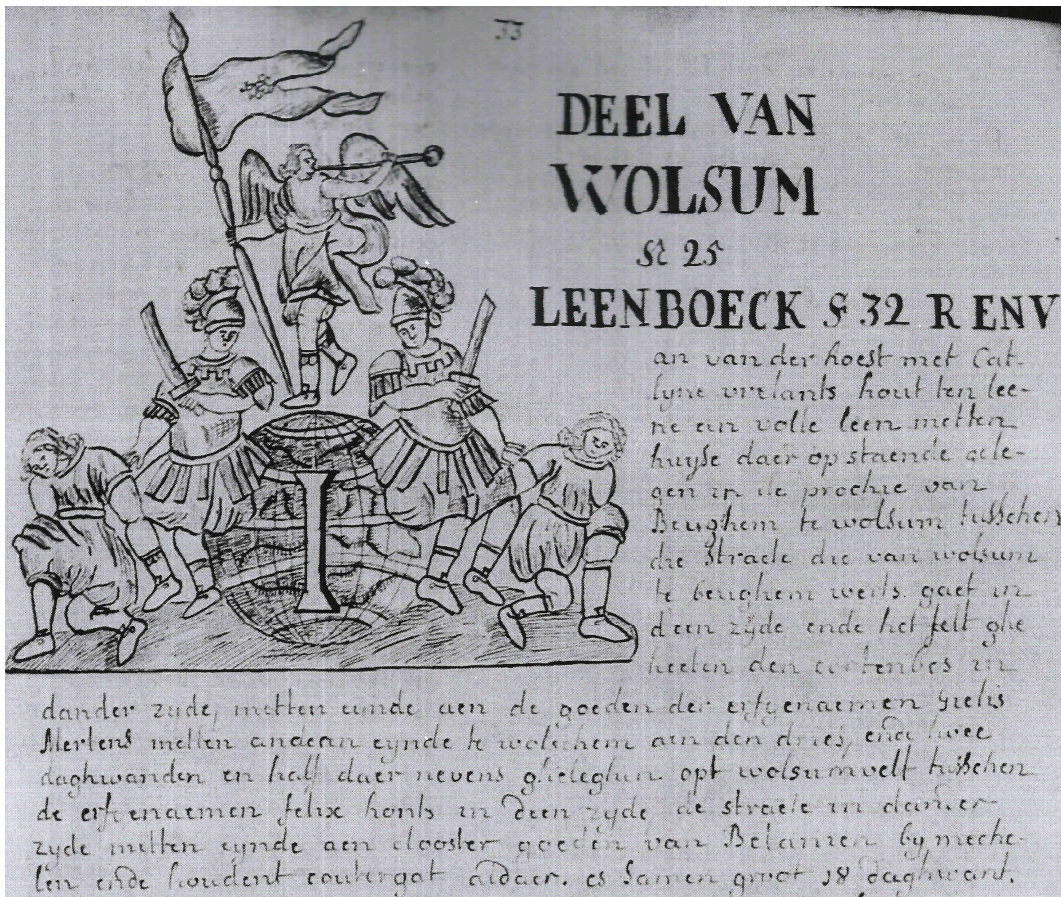 33
DEEL VAN
WOLSUM
St 25
LEENBOECK § 32 R ENV
I
an van der hoest met Cat-
lyne vrelants hout ten lee-
ne ein volle leen metten
huyse daer op staende gele-
gen in de prochie van
Beughem te wolsum tusschen
die straete die van wolsum
te beughem werts gaet in
deen zyde ende het felt ghe
heeten den eertenbos in
dander zyde, metten eynde aen de goeden der erfgenaemen Gielis
Mertens metten anderen eynde te wolschem aen den dries, ende twee
daghwanden en half daer nevens gheleghen opt wolsumvelt tusschen
de erfgenaemen felix honts in deen zyde de straete in dander
zyde metten eynde aen clooster goeden van Betanien by meche-
len ende houdent coutergat aldaer. es samen groot 18 daghwant.